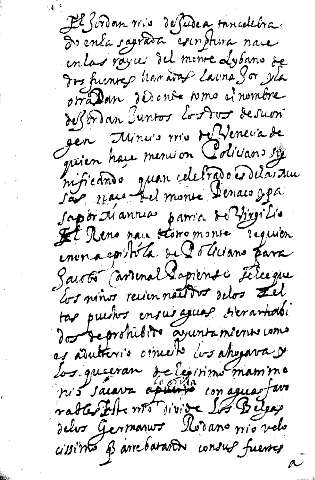 El Jordan rio de Judea tan celebra
do en la sagrada escritura nace
en las rayces del monte Lybano de
dos fuentes llamadas la una Jor y la
otra Dan de donde tomo el nombre
de Jordan juntos los dos de su ori
gen Mincio rio de Venecia de
quien haze mencion Policiano si
nificando quan celebrado es de las Mu
sas nace del monte Benaco y pa
sa por Mantua patria de Virgilio
El Reno nace
en una epistola de Policiano para
Jacobo Cardenal Papiense dice que
los niños recien nacidos de los Cel
tas puestos en sus aguas si eran habi
dos de prohibido ayuntamiento como
es adulterio o incesto los ahogava y
los que eran de legitimo matrimo
nio sacava a la orilla con aguas favo
rables Este rio divide los Belgas
de los Germanos Rodano rio velo
cissimo q arrebatando con sus fuertes
a